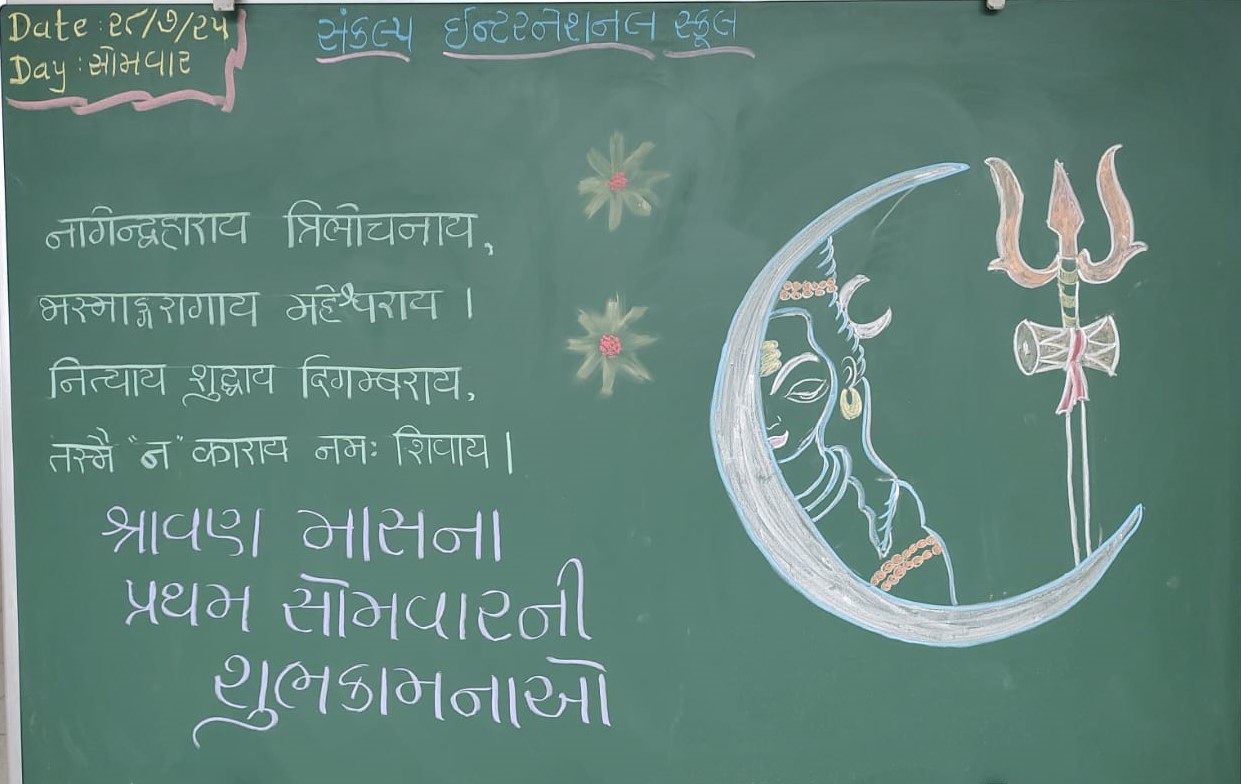 Date : ૨૮/૭/૨૫
Day : સોમવાર
સંકલ્પ ઈન્ટરનેશનલ સ્કૂલ
नागेन्द्रहाराय त्रिलोचनाय,
भस्माङ्गरागाय महेश्वराय ।
नित्याय शुद्धाय दिगम्बराय,
तस्मै "न" काराय नमः शिवाय ।
શ્રાવણ માસના
પ્રથમ સોમવારની
શુભકામનાઓ